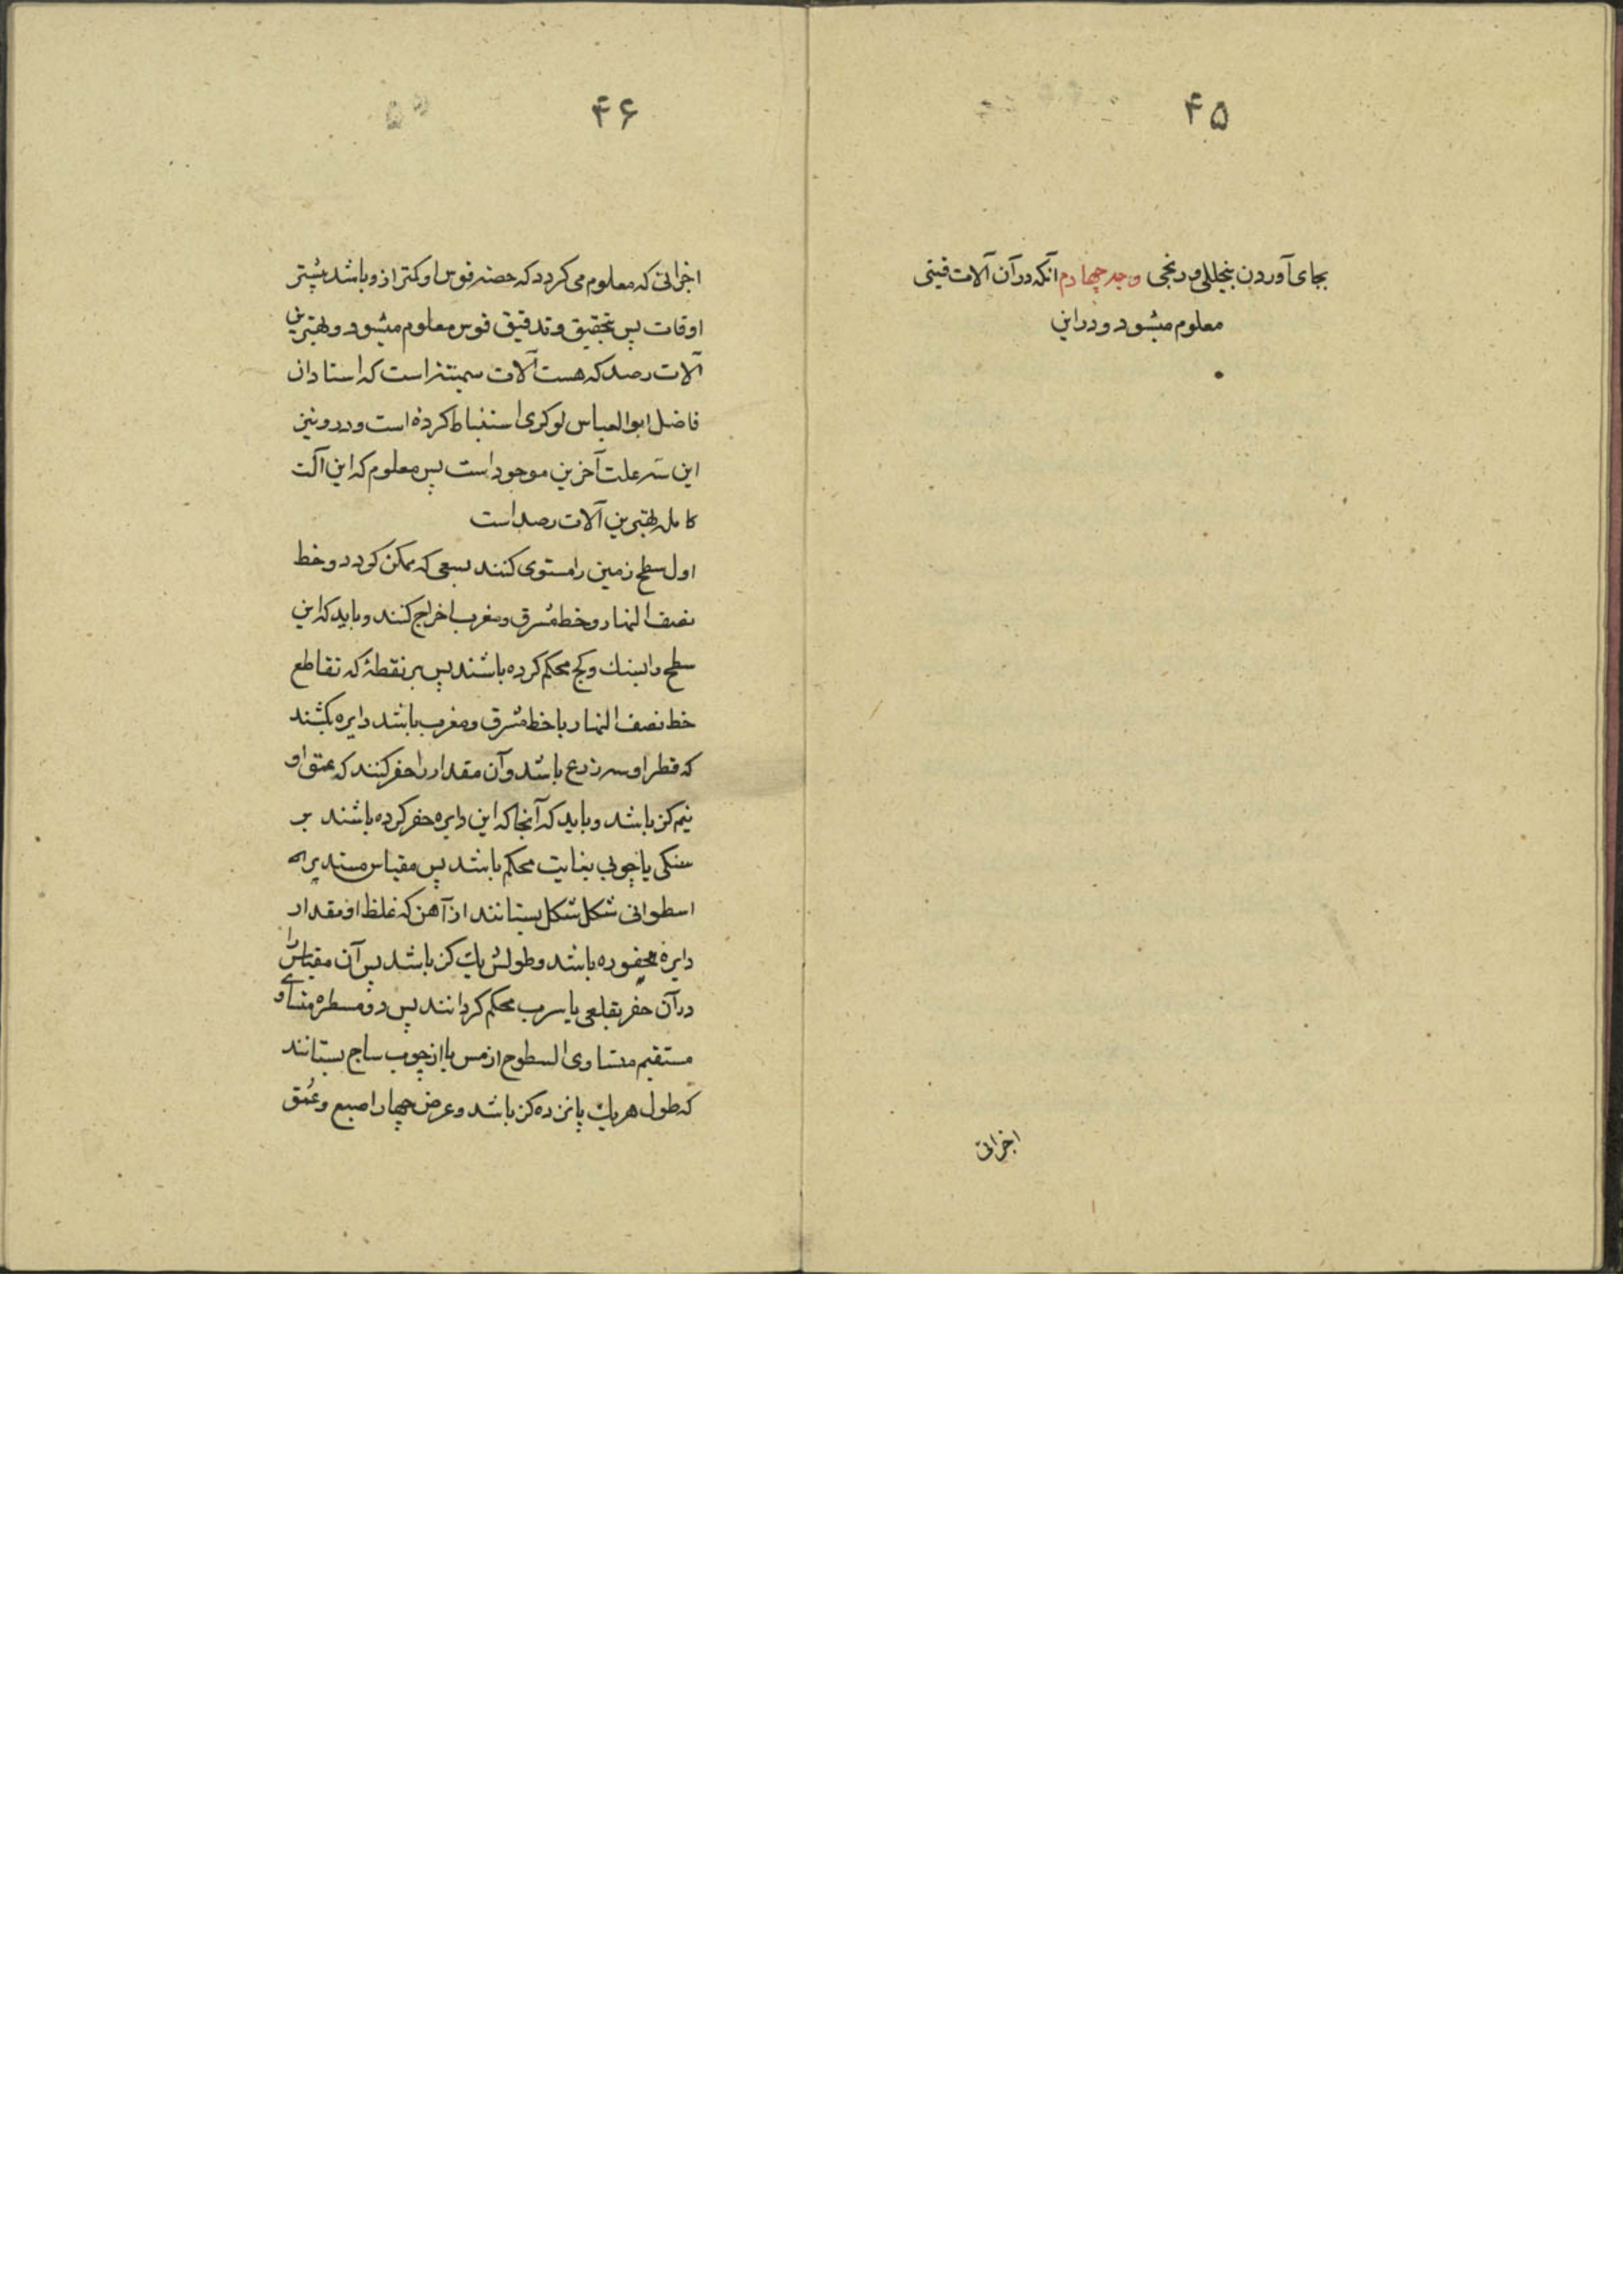 ۴۵
بجای آوردن بتحلیلی و رنجی وجه چهارم آنکه در آن آلات
معلوم میشود و در این
اجزائی
۴۶
اجزائی که معلوم می کردد که حصه قوس او کمتر ازو باشد بیشتر
اوقات پس بتحقیق و تدقیق قوس معلوم میشود و بهترین
آلات رصد که هست آلات سمتیه است که استادان
فاضل ابوالعباس لوکری استنباط کرده است و درو نیز
این سه علت آخرین موجود است پس معلوم که این آلت
کامل بهترین آلات رصد است
اول سطح زمین را مستوی کنند بسعی که ممکن کردد و خط
نصف النهار و خط مشرق و مغرب اخراج کنند و باید که این
سطح را بسنک و کج محکم کرده باشند پس بر نقطهٔ که تقاطع
خط نصف النهار با خط مشرق و مغرب باشد دایره بکشند
که قطر او سه ذرع باشد و آن مقدار را حفر کنند که عمق او
نیم کز باشد و باید که آنجا که این دایره حفر کرده باشند بر
سنکی یا چوبی بغایت محکم باشد پس مقیاس مستدیر
اسطوانی شکل شکل بستانند از آهن که غلظ او مقدار
دایره محفوره باشد و طولش یک کز باشد پس آن مقیاس را
در آن حفر بقلعی یا سرب محکم کردانند پس دو مسطره متساوی
مستقیم متساوی السطوح از مس یا از چوب ساج بستانند
که طول هر یک پانزده کز باشد و عرض چهار اصبع و عمق